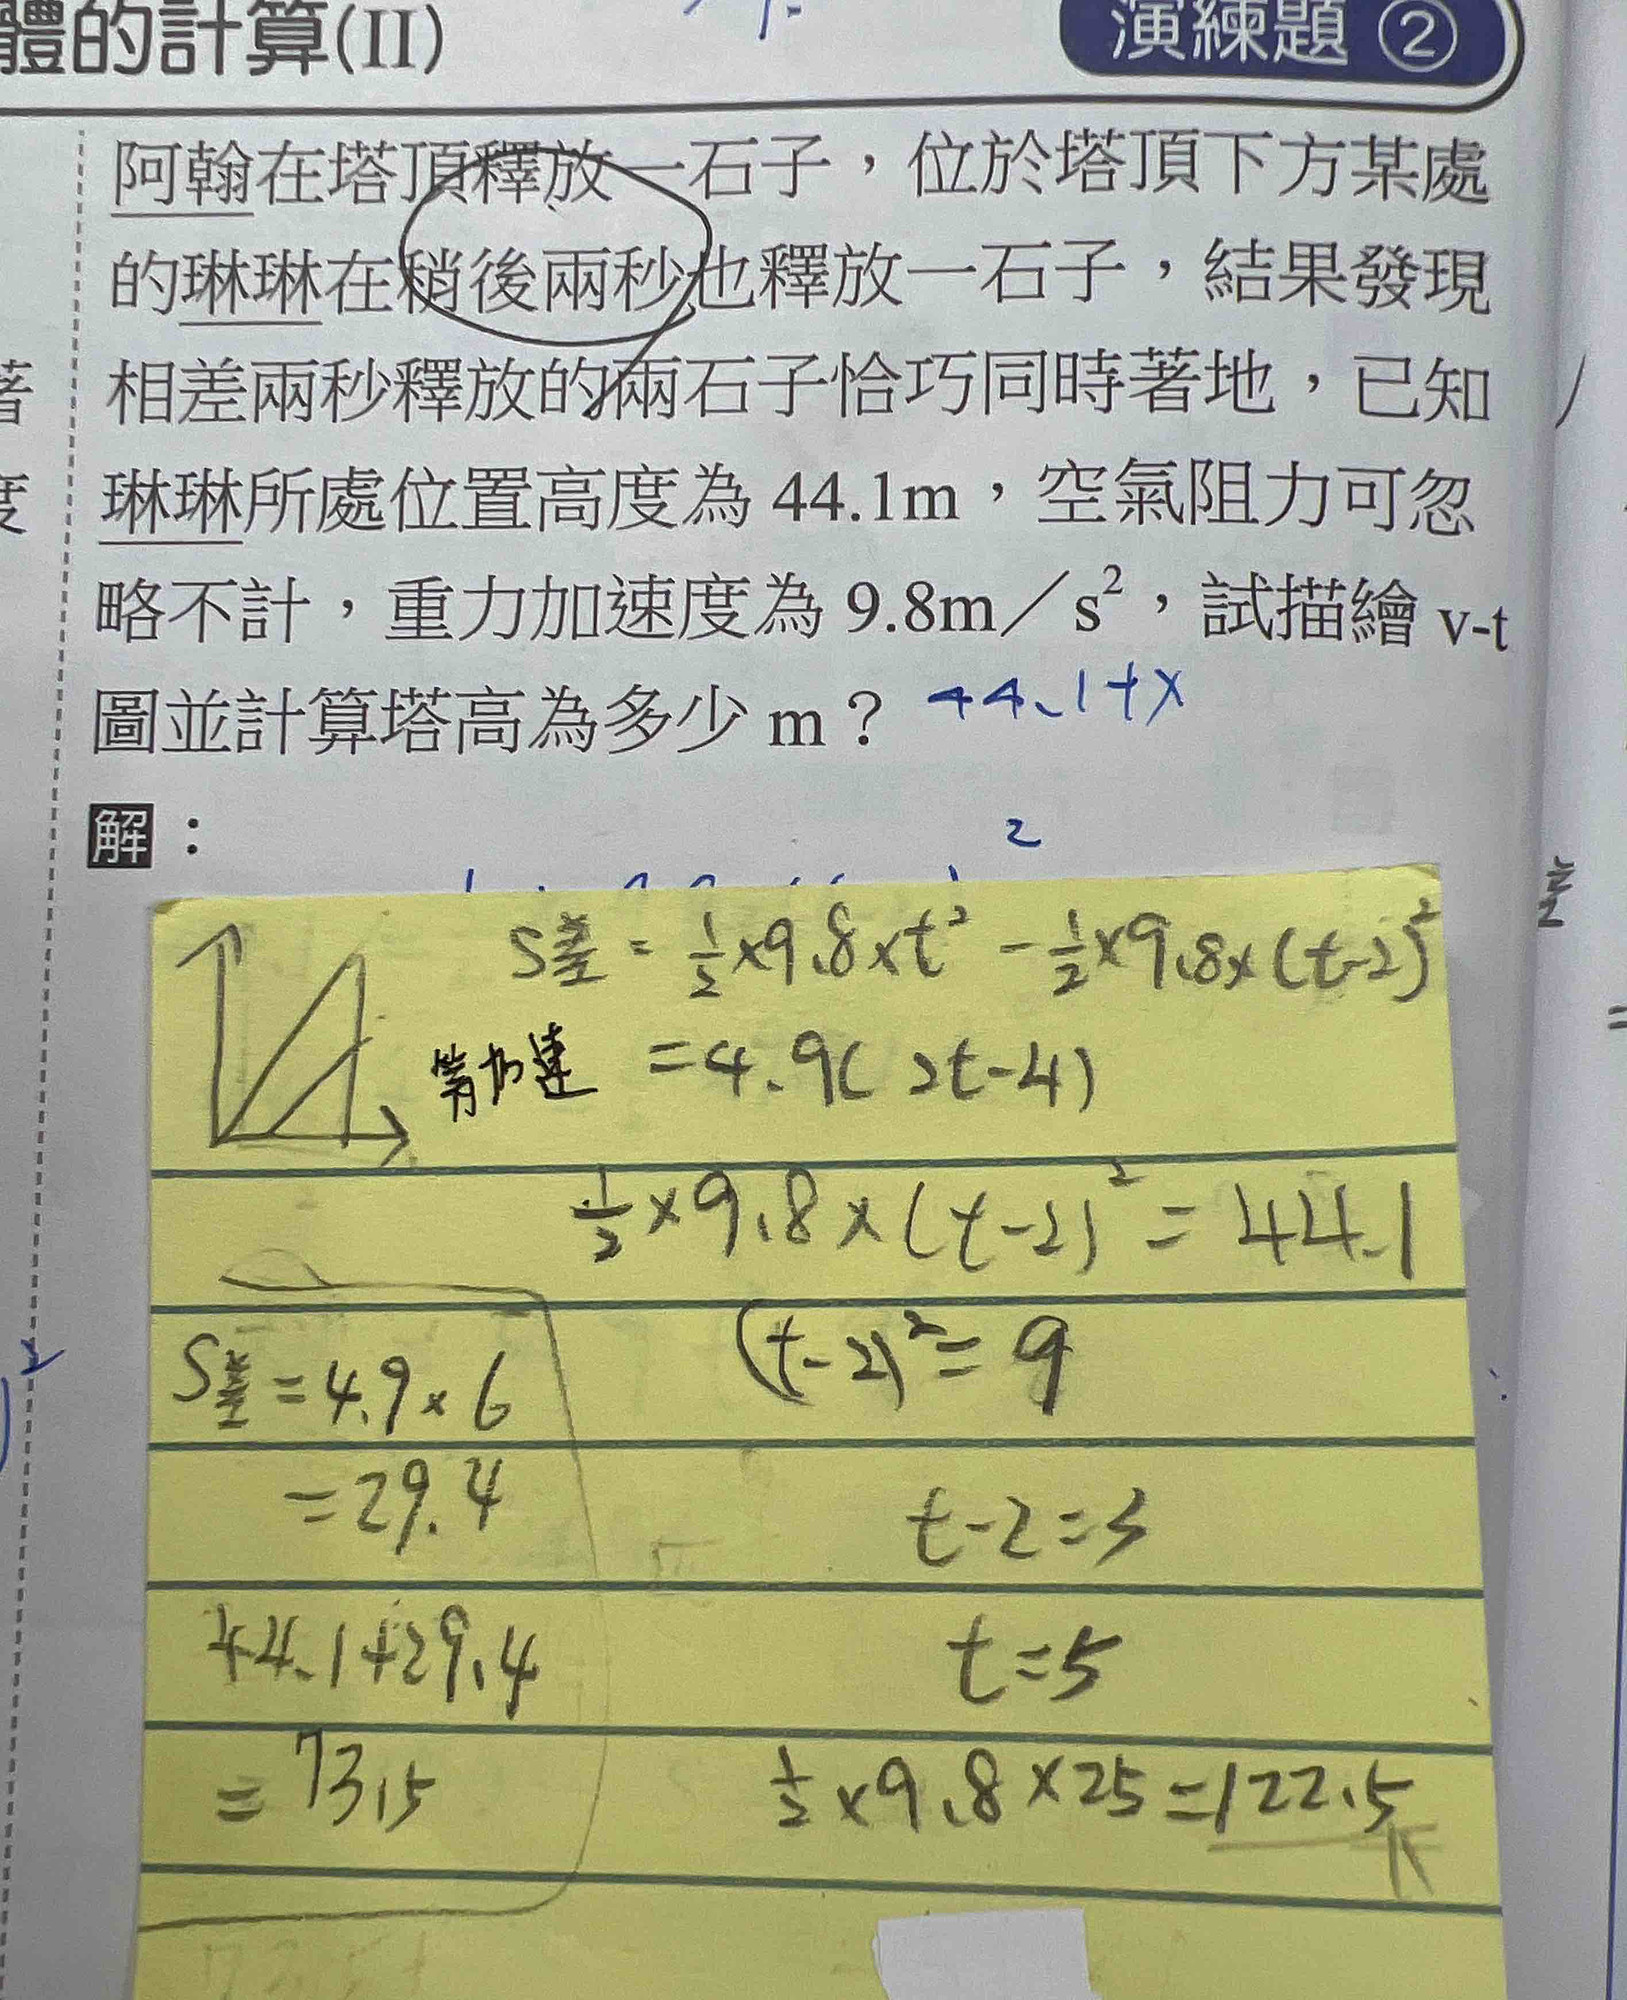 體的計算(II)
演練題 ②
阿翰在塔頂釋放一石子，位於塔頂下方某處
的琳琳在稍後兩秒也釋放一石子，結果發現
相差兩秒釋放的兩石子恰巧同時著地，已知
琳琳所處位置高度為 44.1m，空氣阻力可忽
略不計，重力加速度為 9.8m／s²，試描繪 v-t
圖並計算塔高為多少 m？ 44.1+x
解：
2
S差 = 1/2×9.8×t² - 1/2×9.8×(t-2)²
等加速 =4.9( 2t-4)
1/2×9.8×(t-2)² = 44.1
(t-2)² = 9
t-2=3
t=5
1/2×9.8×25=122.5
S差=4.9×6
=29.4
44.1+29.4
=73.5
著
度
差
=
2